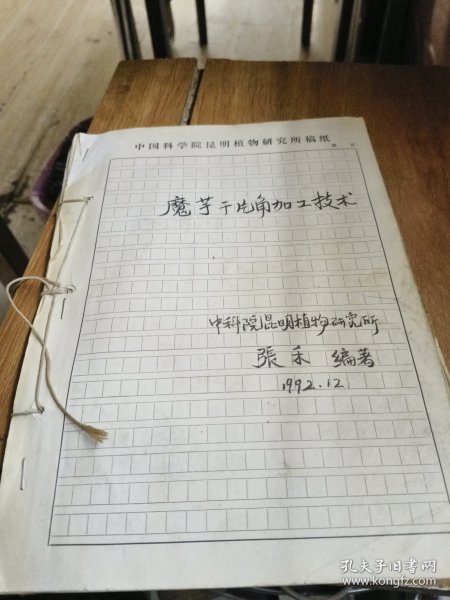 中国科学院昆明植物研究所稿纸
魔芋干片角加工技术
中科院昆明植物研究所
張禾 编著
1992.12
孔夫子旧书网
www.kongfz.com